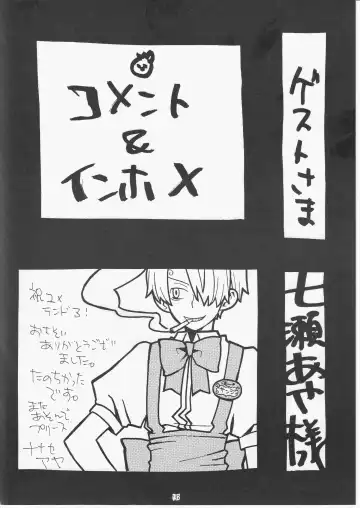 ゲストさま
コメント
&
インホメ
七瀬あや様
祝ユメ
ランド3!
おさそい
ありがとうござい
ました。
たのしかった
です。
また
あそんで
プリーズ
ナナセ
アヤ